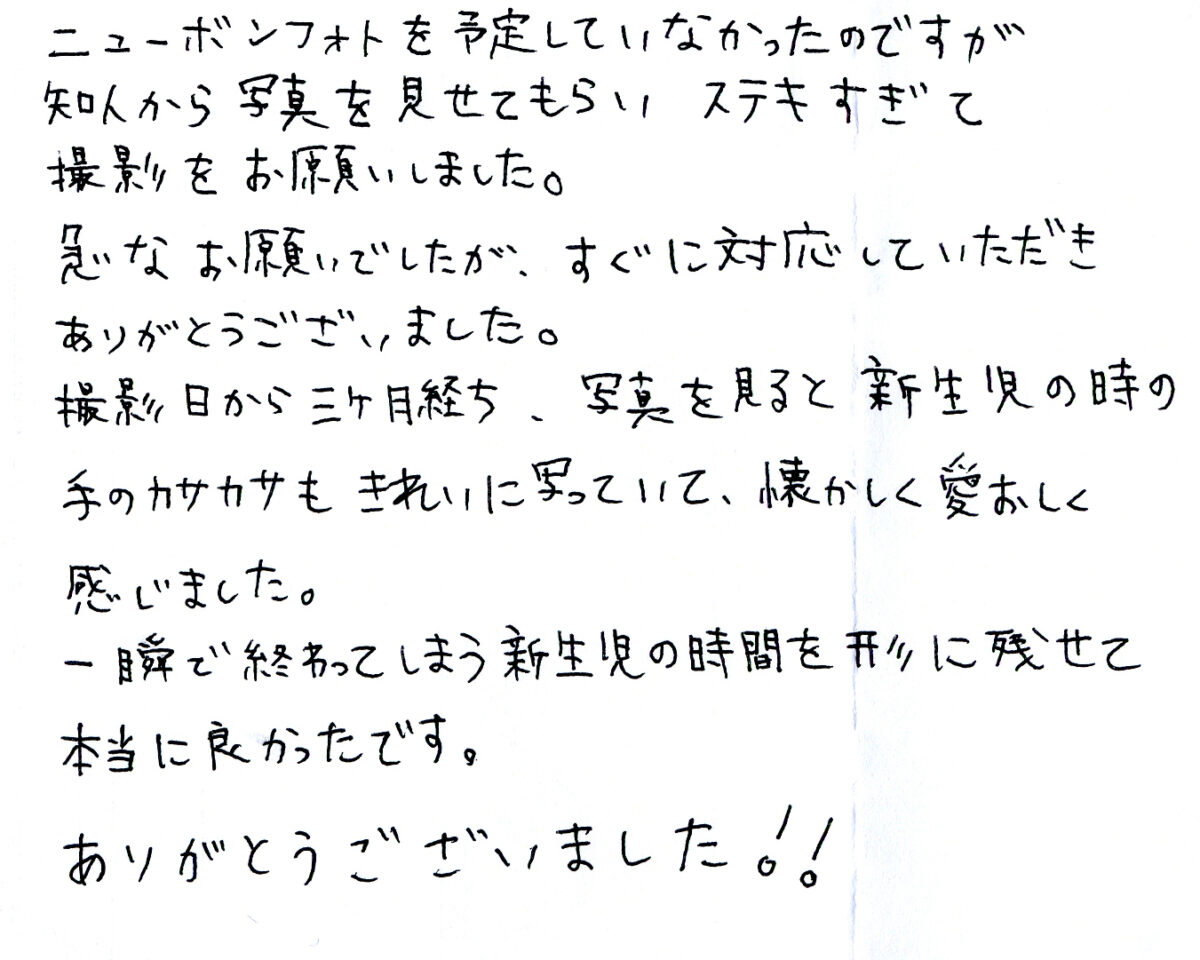 ニューボンフォトを予定していなかったのですが
知人から写真を見せてもらい ステキすぎて
撮影をお願いしました。
急なお願いでしたが、すぐに対応していただき
ありがとうございました。
撮影日から三ケ月経ち、写真を見ると新生児の時の
手のカサカサもきれいに写っていて、懐かしく愛おしく
感じました。
一瞬で終わってしまう新生児の時間を形に残せて
本当に良かったです。
ありがとうございました!!